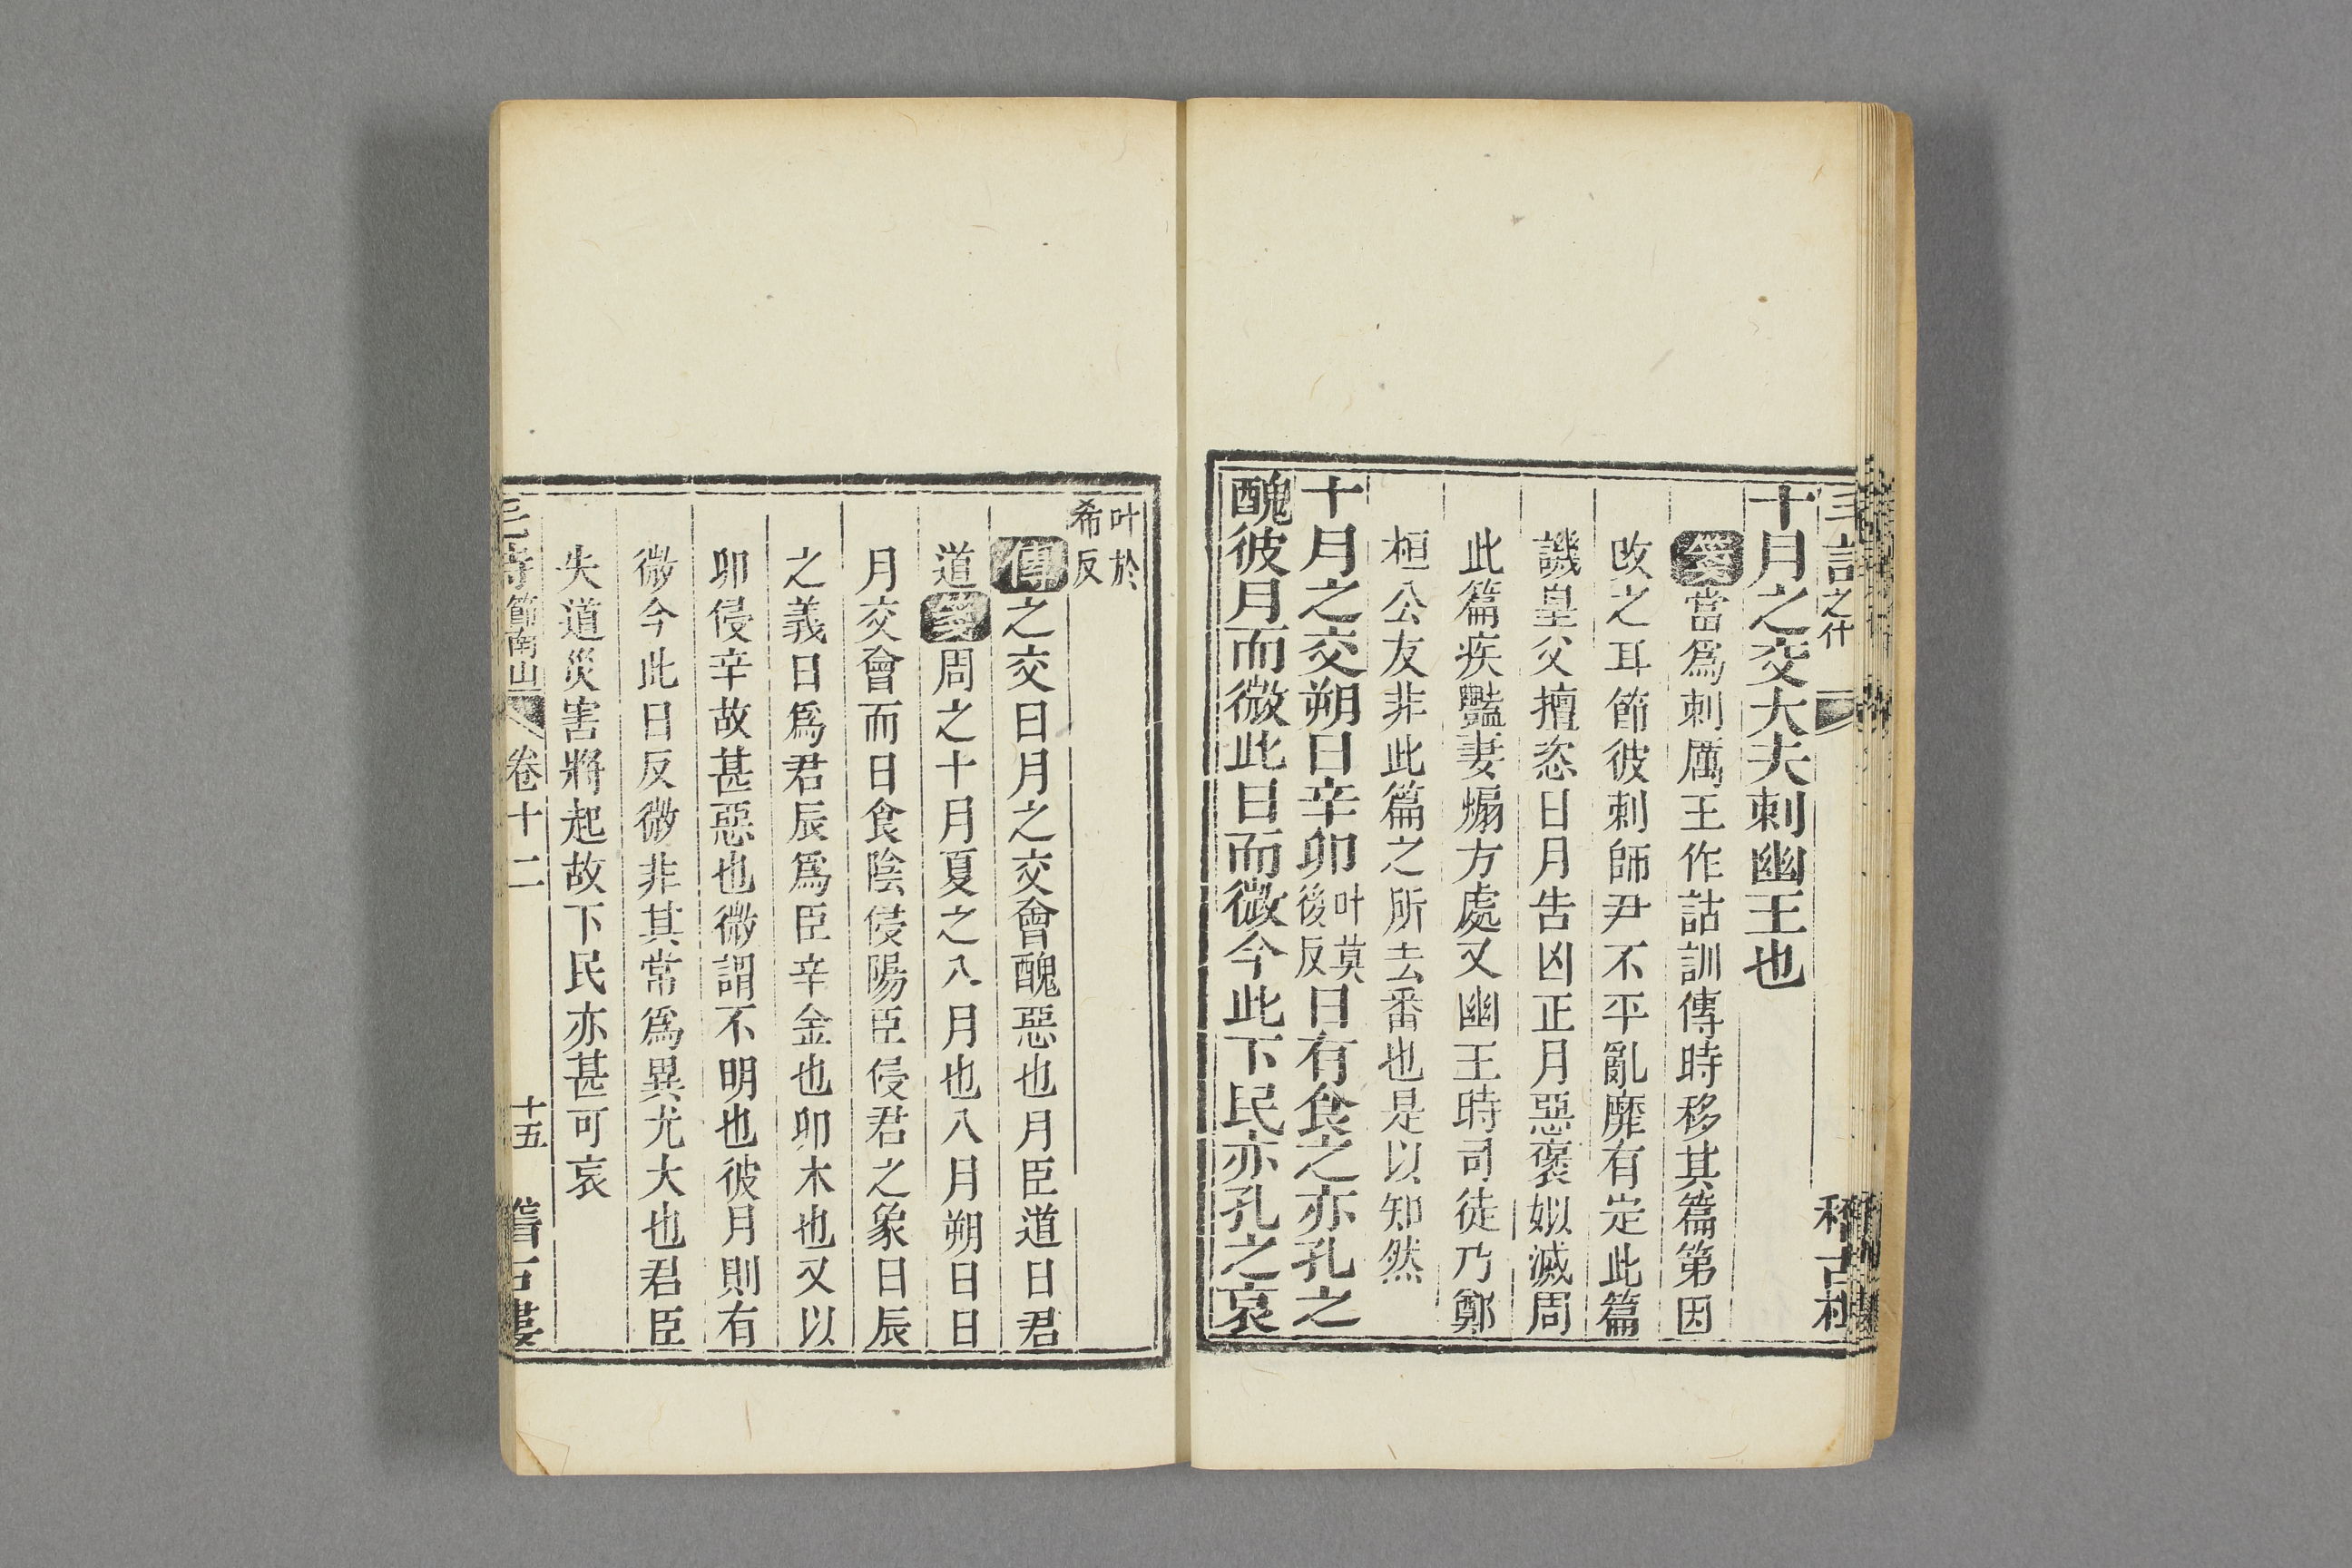 十月之交大夫刺幽王也
箋當爲刺厲王作詁訓傳時移其篇第因
改之耳節彼刺師尹不平亂靡有定此篇
譏皇父擅恣日月告凶正月惡褒姒滅周
此篇疾豔妻煽方處又幽王時司徒乃鄭
桓公友非此篇之所云番也是以知然
十月之交朔日辛卯叶莫後反日有食之亦孔之
醜彼月而微此日而微今此下民亦孔之哀
叶於希反
傳之交日月之交會醜惡也月臣道日君
道箋周之十月夏之八月也八月朔日日
月交會而日食陰侵陽臣侵君之象日辰
之義日爲君辰爲臣辛金也卯木也又以
卯侵辛故甚惡也微謂不明也彼月則有
微今此日反微非其常爲異尤大也君臣
失道災害將起故下民亦甚可哀
節南山 卷十二 十五